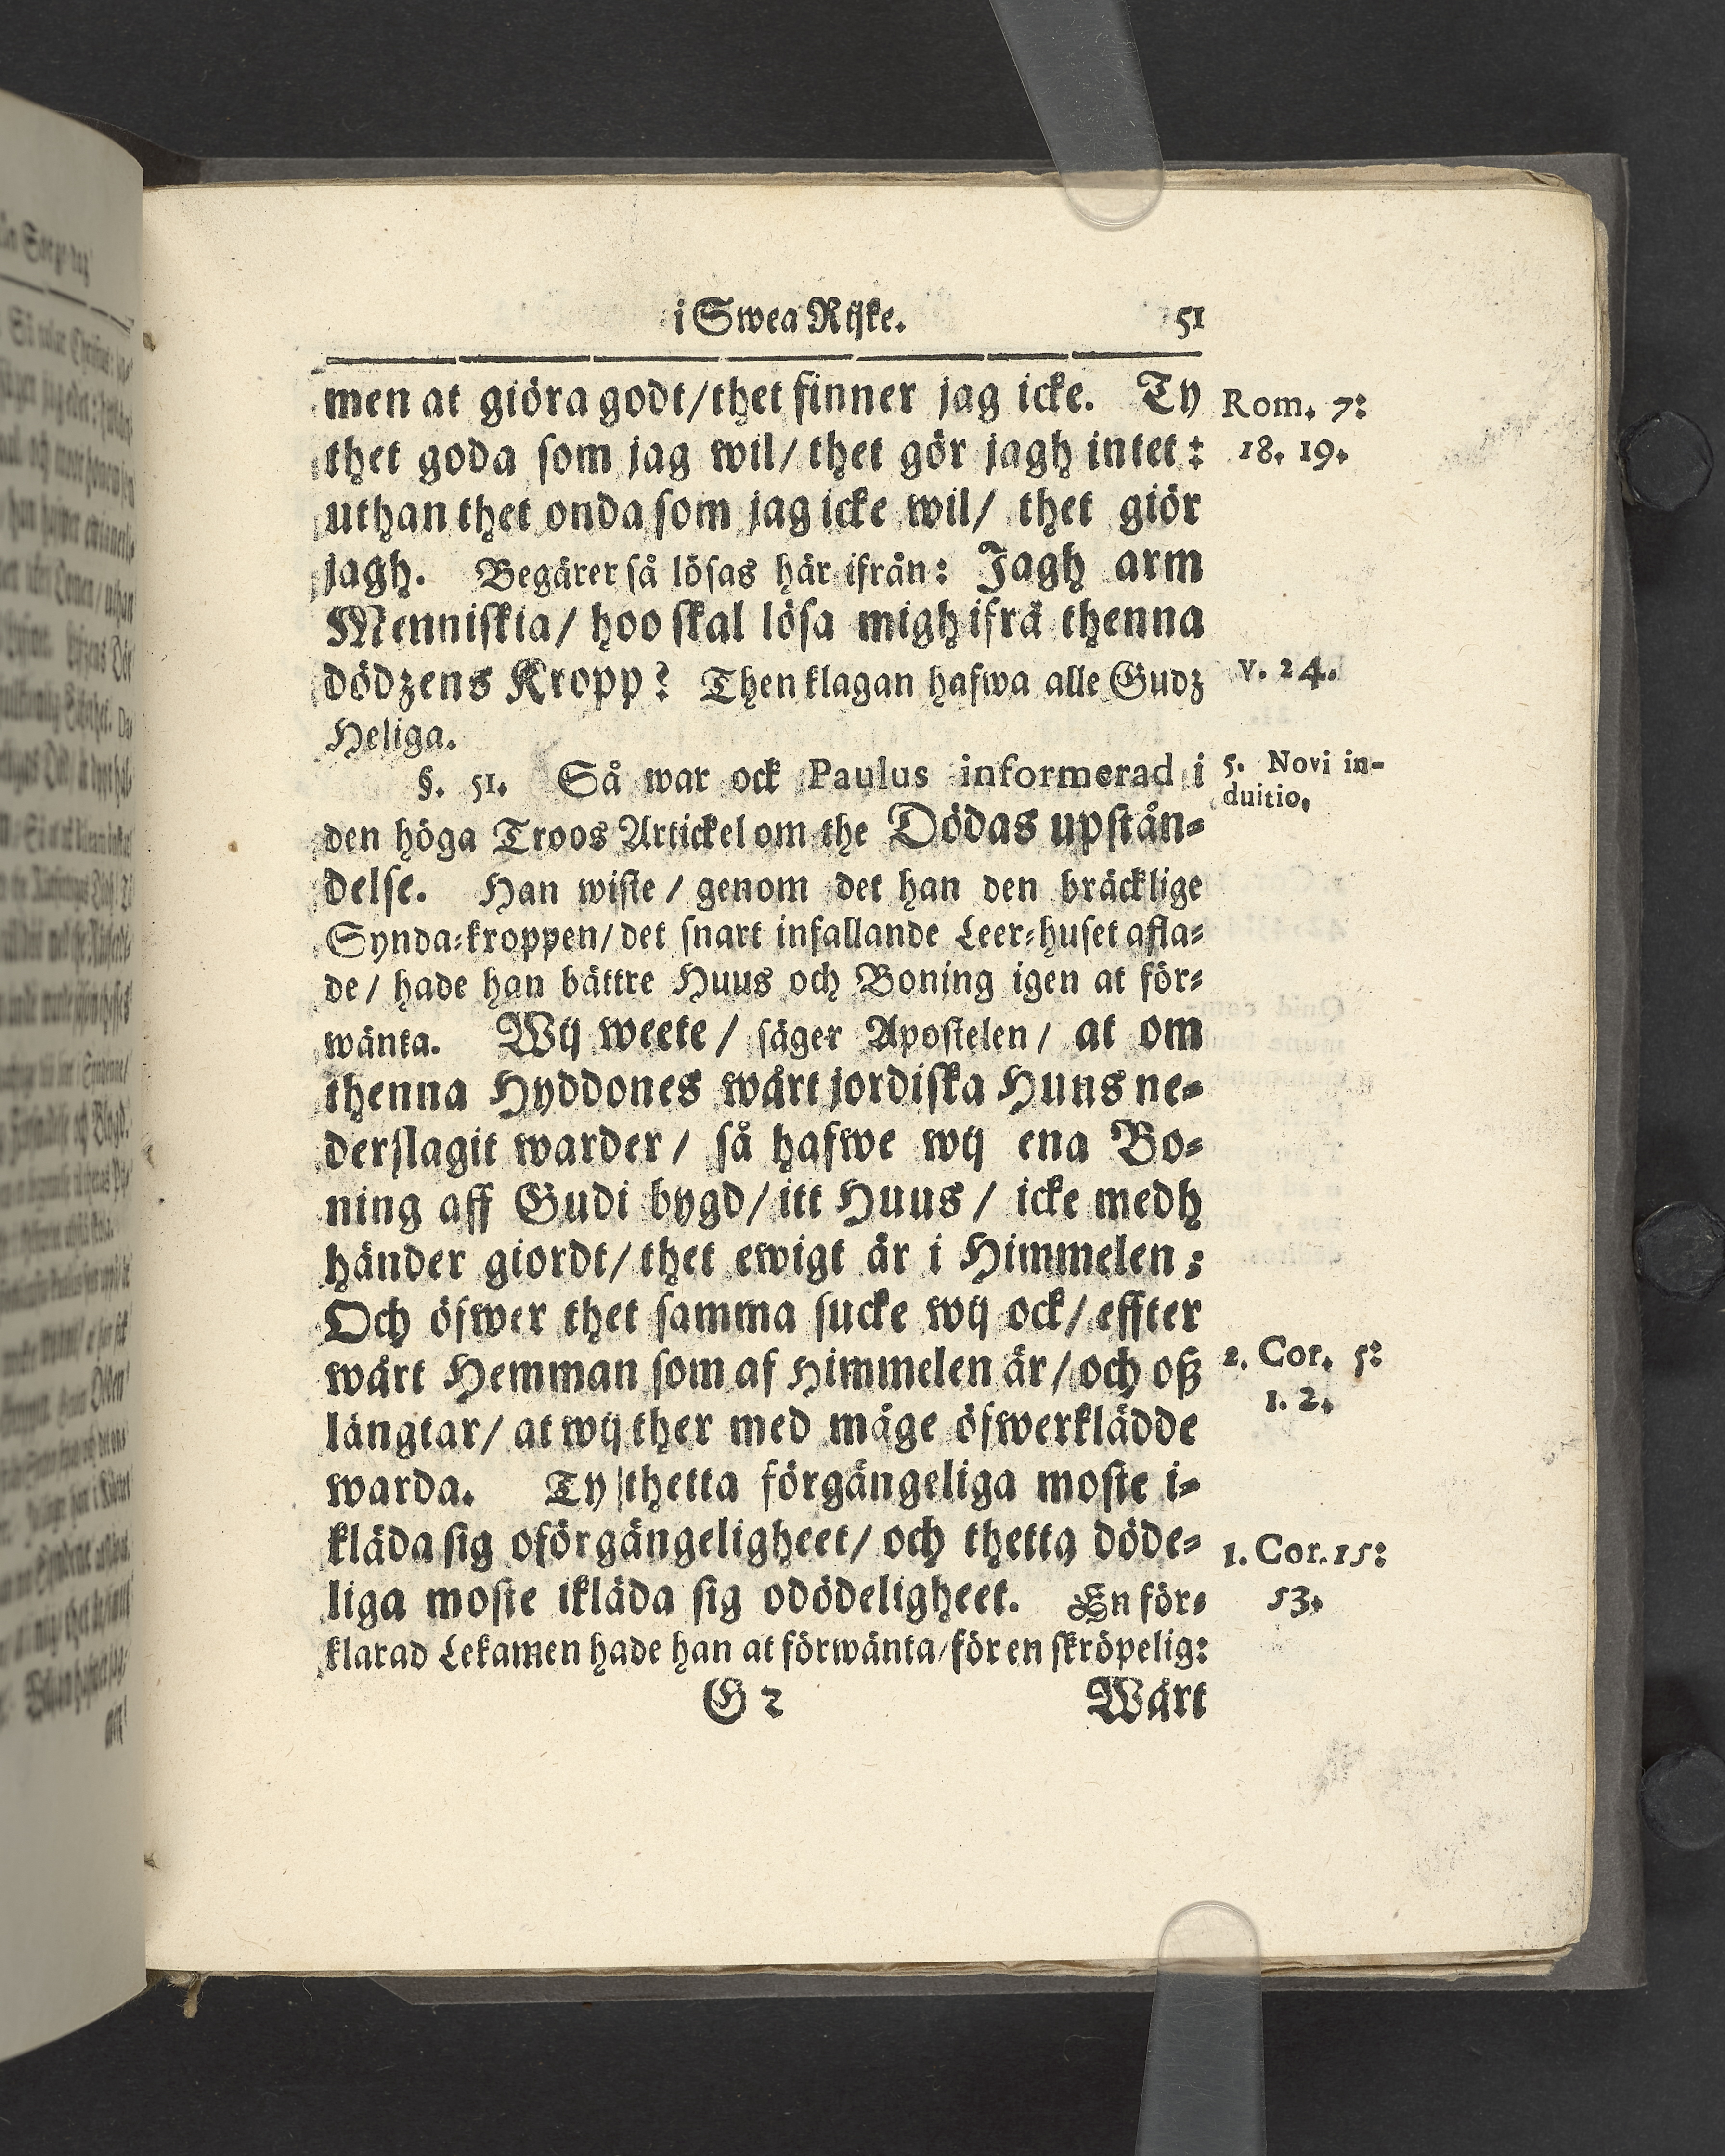 i Swea Rijke. 51
men at giöra godt/thet finner jag icke. Ty
Rom. 7:
thet goda som jag wil/ thet gör jagh intet:
18. 19.
uthan thet onda som jag icke wil/ thet giör
jagh. Begärer så lösas här ifrån: Jagh arm
Menniskia/ hoo skal lösa migh ifrå thenna
dödzens Kropp? Then klagan hafwa alle Gudz
v. 24.
Heliga.
§. 51. Så war ock Paulus informerad i
5. Novi in-
duitio.
den höga Troos Artickel om the Dödas upstån-
delse. Han wiste / genom det han den bräcklige
Synda-kroppen/ det snart infallande Leer-huset afla-
de / hade han bättre Huus och Boning igen at för-
wänta. Wij weete / säger Apostelen / at om
thenna Hyddones wårt jordiska Huns ne-
derslagit warder / så hafwe wij ena Bo-
ning aff Gudi bygd/ itt Huus / icke medh
händer giordt/ thet ewigt är i Himmelen;
Och öfwer thet samma sucke wij ock/ effter
wårt Hemman som af Himmelen är/ och oß
2. Cor. 5:
1. 2.
längtar/ at wij ther med måge öfwerklädde
warda. Ty thetta förgängeliga moste i-
kläda sig oförgängeligheet/ och thetta döde-
1. Cor. 15:
liga moste ikläda sig odödeligheet. En för-
53.
klarad Lekamen hade han at förwänta/ för en skröpelig:
G 2 Wårt